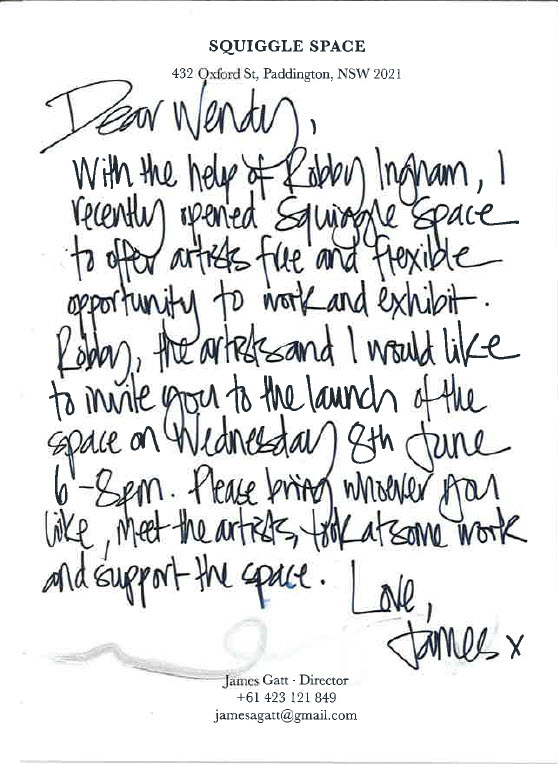 SQUIGGLE SPACE
432 Oxford St, Paddington, NSW 2021
Dear Wendy,
With the help of Robby Ingham, I
recently opened Squiggle Space
to offer artists free and flexible
opportunity to work and exhibit.
Robby, the artists and I would like
to invite you to the launch of the
space on Wednesday 8th June
6-8pm. Please bring whoever you
like, meet the artists, look at some work
and support the space.
Love,
James x
James Gatt · Director
+61 423 121 849
jamesagatt@gmail.com